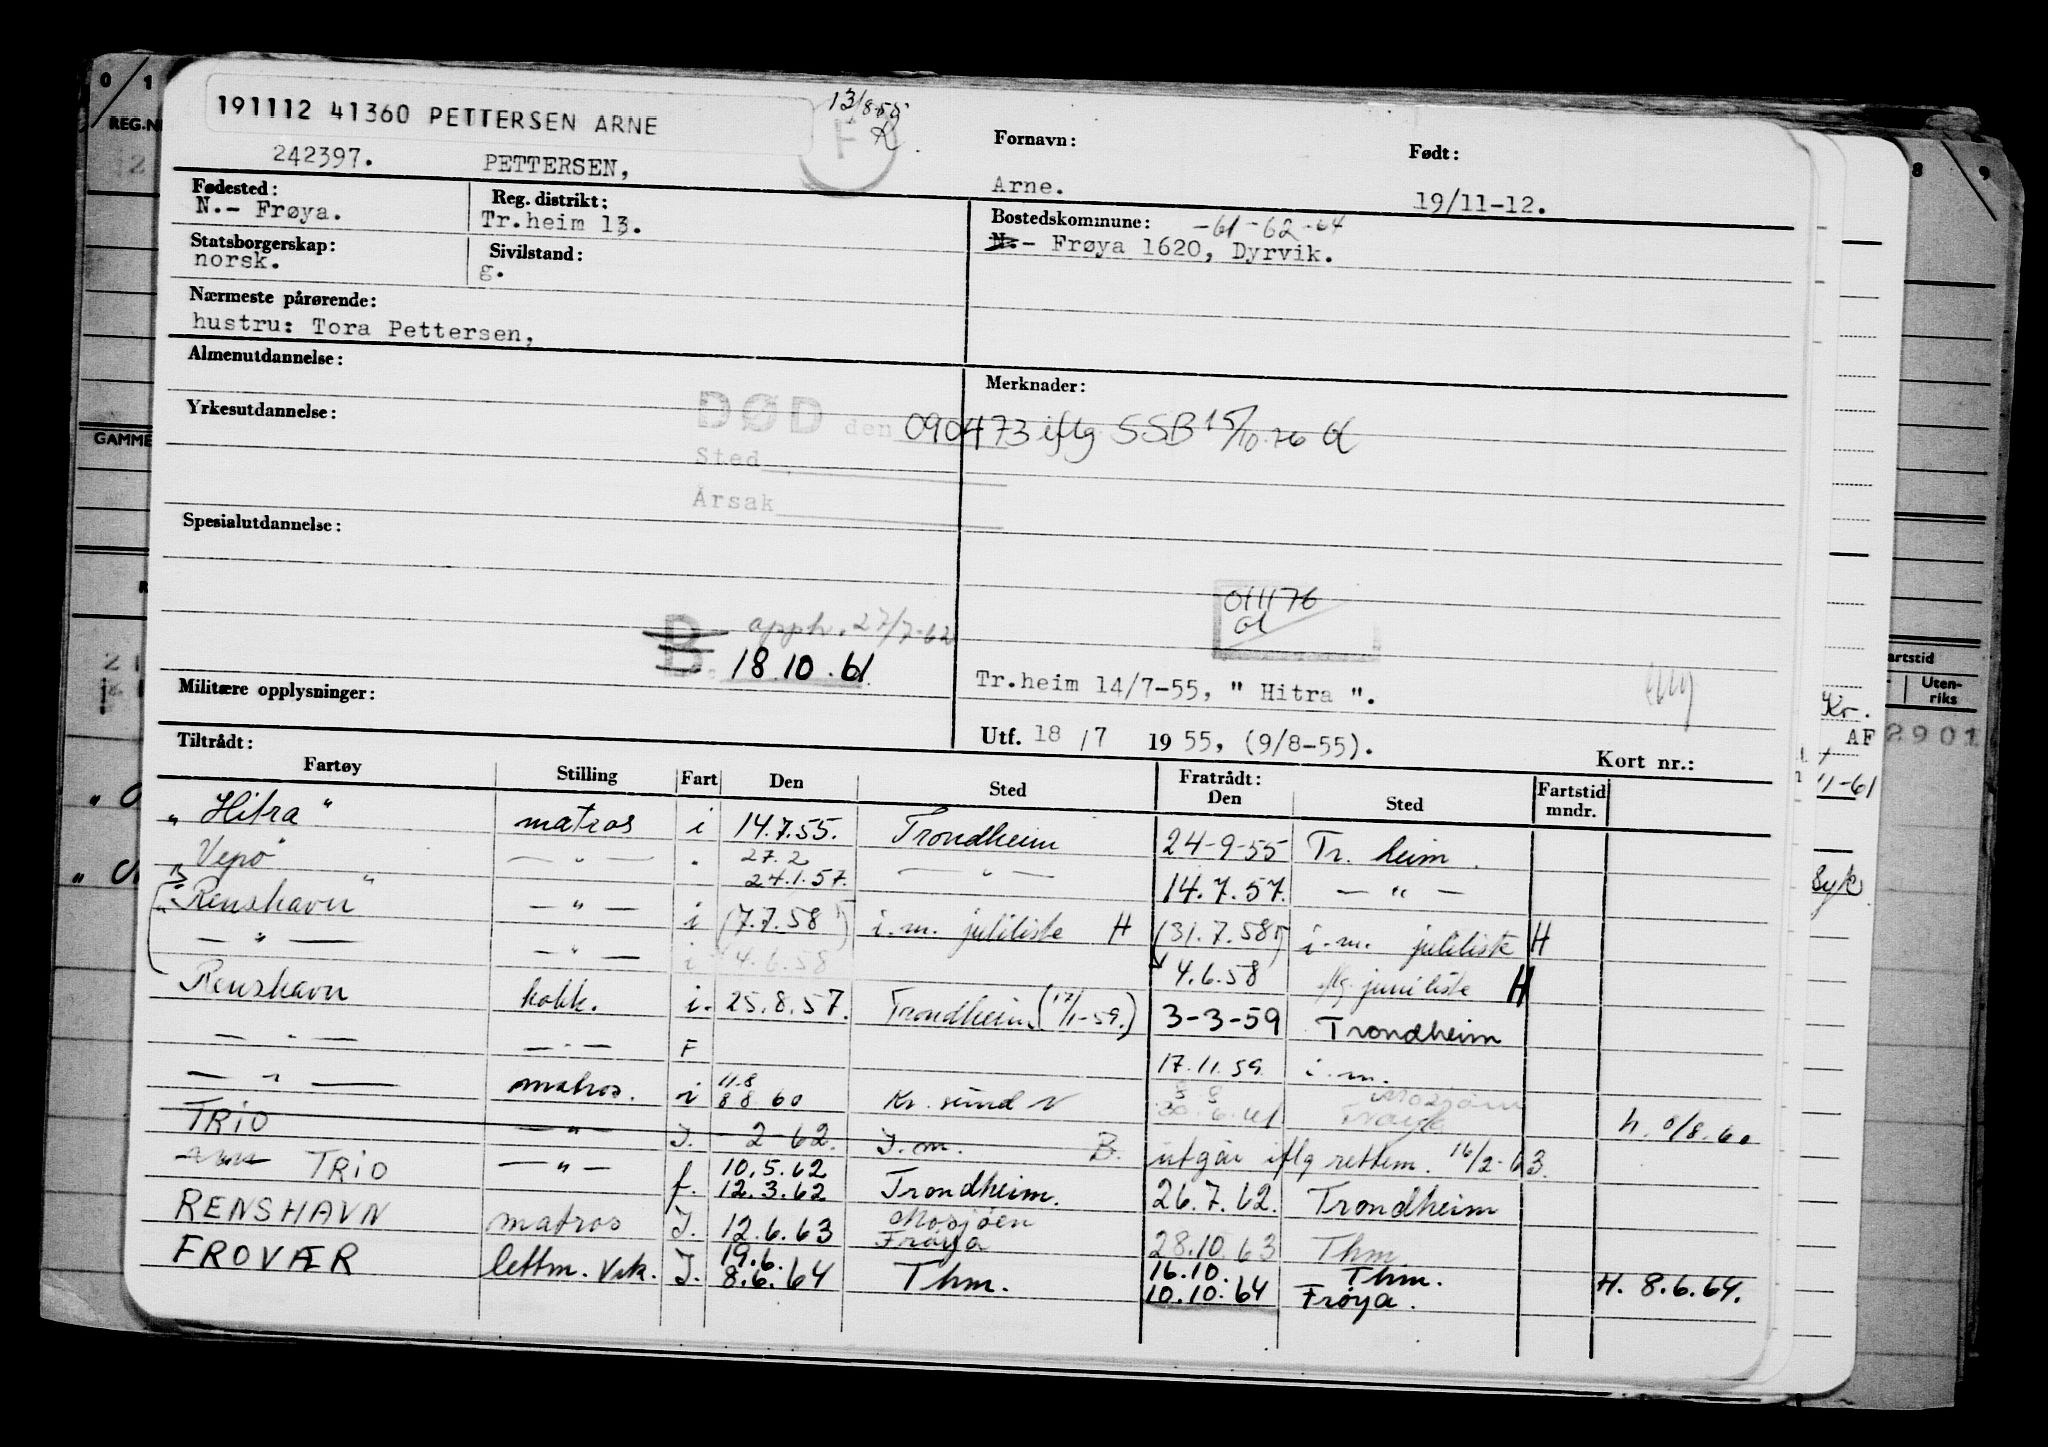 191112 41360 PETTERSEN ARNE
13/8-55
F
242397. PETTERSEN,
Fornavn: Arne.
Født: 19/11-12.
Fødested: N.- Frøya.
Reg. distrikt: Tr.heim 13.
Bostedskommune: -61-62-64
N.- Frøya 1620, Dyrvik.
Statsborgerskap: norsk.
Sivilstand: g.
Nærmeste pårørende:
hustru: Tora Pettersen,
Almenutdannelse:
Merknader:
Yrkesutdannelse:
DØD den 090473 iflg SSB 15/10.76
Sted
Årsak
Spesialutdannelse:
011176
B. opph. 27/7-62
18.10.61
Militære opplysninger:
Tr.heim 14/7-55, " Hitra ".
Utf. 18/7 1955, (9/8-55).
Kort nr.:
Tiltrådt:
Fratrådt:
Fartøy Stilling Fart Den Sted Den Sted Fartstid mndr.
"Hitra" matros i 14.7.55. Trondheim 24-9-55 Tr. heim.
Vepø" — " — " 27.2 24.1.57. — " — 14.7.57. — " —
"Renshavn" — " — i (7.7.58) i.m. juliliste H (31.7.58) i.m. juliliste H
— " — — " — i 4.6.58 4.6.58 iflg. juniliste H
Renshavn kokk. i. 25.8.57. Trondheim (17/1-59.) 3-3-59 Trondheim
— " — — " — F 17.11.59 i.m.
— " — matros. i 11.8 8.8.60 Kr. sund N 30.6.61 h. 0/8.60
TRIO — " — I. 2-62. I.m. B. utgår iflg rettem. 16/2-63.
TRIO — " — f. 10.5.62 12.3.62 Trondheim. 26.7.62. Trondheim
RENSHAVN matros I. 12.6.63 Mosjøen Frøya 28.10.63 Thm
FROVÆR lettm. Vrk. I. 19.6. 8.6.64 Thm. 16.10. 10.10.64 Thm. Frøya. H. 8.6.64.
0 1
REG.N
GAMME
8 9
artstid
Uten-
riks
Kr.
AF 2901
11-61
Syk